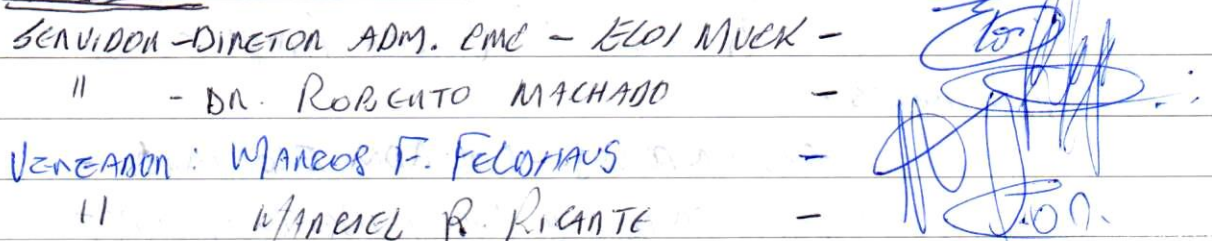 SERVIDOR - DIRETOR ADM. CMC - ELOI MUCK -
" - DR. ROBERTO MACHADO -
VEREADOR: MARCOS F. FELDHAUS -
" MARCIEL R. RICANTE -